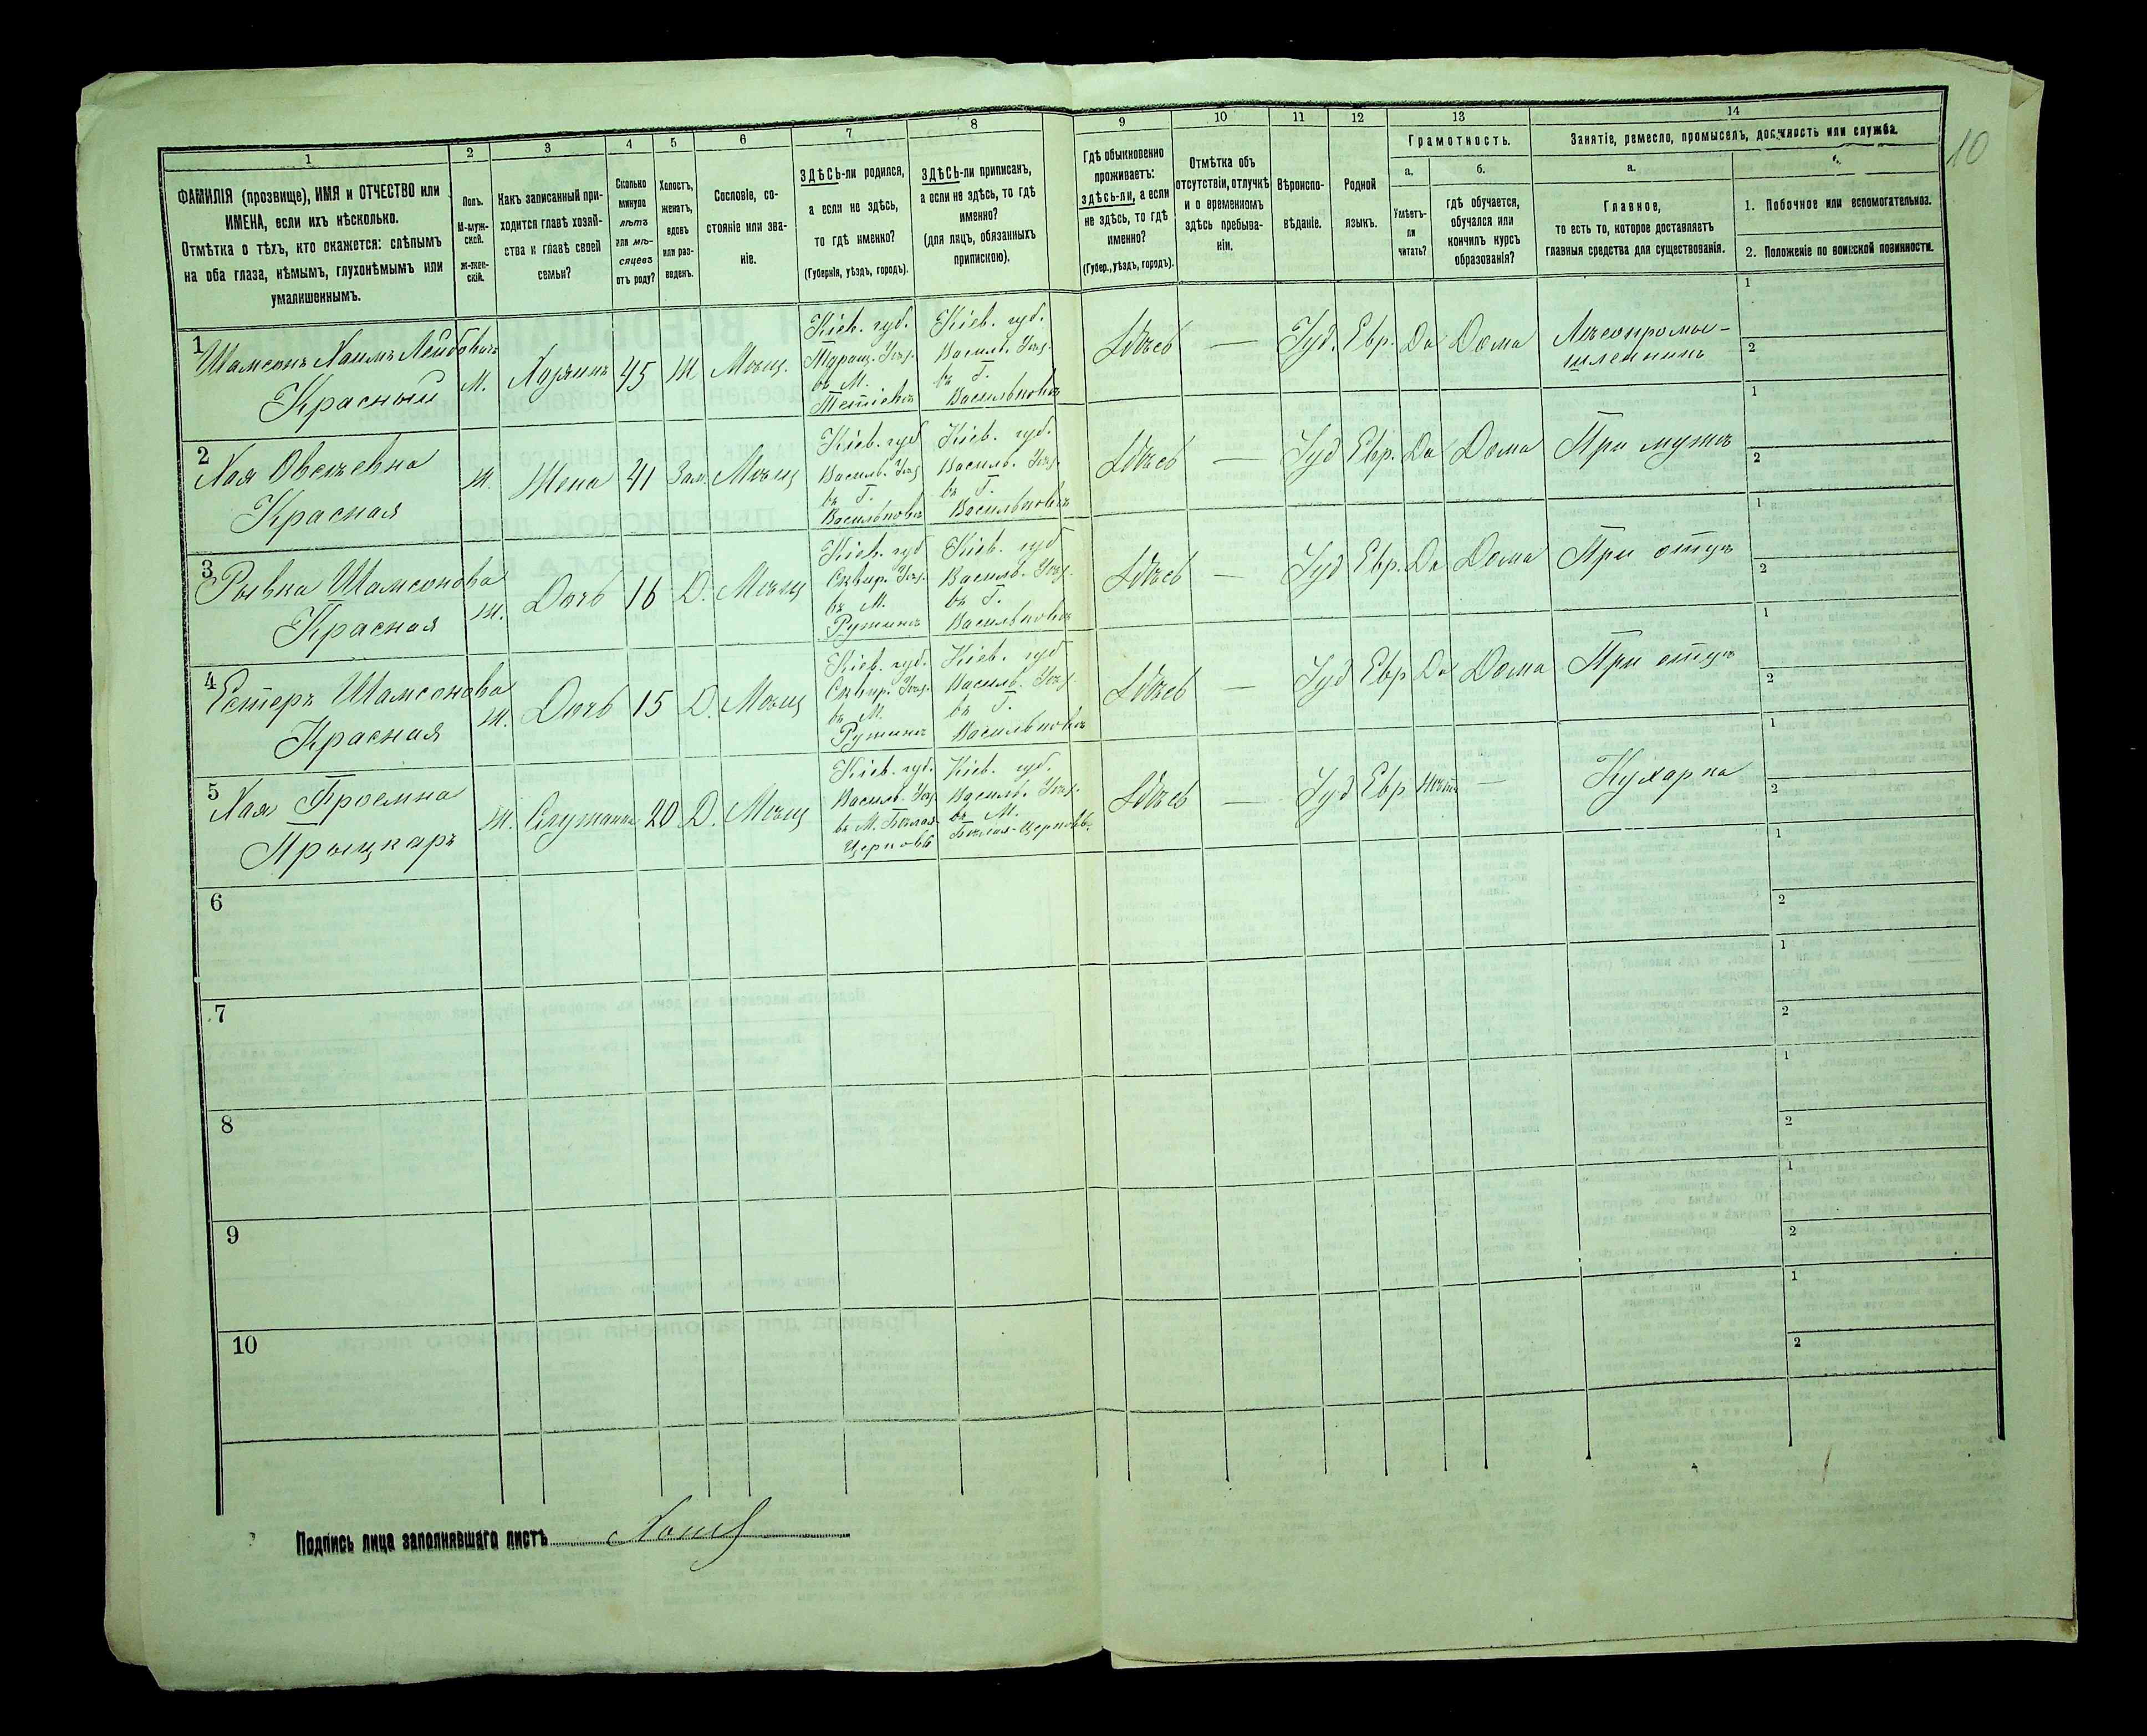 10
1
2
3
4
5
6
7
8
9
10
11
12
13
14
ФАМИЛІЯ (прозвище), ИМЯ и ОТЧЕСТВО или
ИМЕНА, если ихъ нѣсколько.
Отмѣтка о тѣхъ, кто окажется: слѣпымъ
на оба глаза, нѣмымъ, глухонѣмымъ или
умалишеннымъ.
Полъ.
М-муж-
ской.
Ж-жен-
скій.
Какъ записанный при-
ходится главѣ хозяй-
ства и главѣ своей
семьи?
Сколько
минуло
лѣтъ
или мѣ-
сяцевъ
отъ роду?
Холостъ,
женатъ,
вдовъ
или раз-
веденъ.
Сословіе, со-
стояніе или зва-
ніе.
ЗДѢСЬ-ли родился,
а если не здѣсь,
то гдѣ именно?
(Губернія, уѣздъ, городъ).
ЗДѢСЬ-ли приписанъ,
а если не здѣсь, то гдѣ
именно?
(для лицъ, обязанныхъ
припискою).
Гдѣ обыкновенно
проживаетъ:
здѣсь-ли, а если
не здѣсь, то гдѣ
именно?
(Губер., уѣздъ, городъ).
Отмѣтка объ
отсутствіи, отлучкѣ
и о временномъ
здѣсь пребыва-
ніи.
Вѣроиспо-
вѣданіе.
Родной
языкъ.
Грамотность.
а.
Умѣетъ-
ли
читать?
б.
гдѣ обучается,
обучался или
кончилъ курсъ
образованія?
Занятіе, ремесло, промыселъ, должность или служба.
а.
Главное,
то есть то, которое доставляетъ
главныя средства для существованія.
1. Побочное или вспомогательноз.
2. Положеніе по воинской повинности.
1
Шамсонъ Хаимъ Лейбовичъ
Красный
М.
Хозяинъ
45
Ж
Мѣщ.
Кіев. губ.
Таращ. Уѣз.
въ М.
Тетіевѣ
Кіев. губ.
Васильк. Уѣз.
въ Г.
Васильковѣ
Здѣсь
—
Іуд.
Евр.
Да
Дома
Лѣсопромы-
шленникъ
1
2
2
Хая Овсѣевна
Красная
Ж.
Жена
41
Зам.
Мѣщ
Кіев. губ
Васильк. Уѣз
въ Г.
Васильковѣ
Кіев. губ.
Васильк. Уѣз.
въ Г.
Васильковѣ
Здѣсь
—
Іуд
Евр.
Да
Дома
При мужѣ
1
2
3
Рывка Шамсонова
Красная
Ж.
Дочь
16
Д.
Мѣщ
Кіев. губ
Сквир. Уѣз.
въ М.
Ружинѣ
Кіев. губ
Васильк. Уѣз.
въ Г.
Васильковѣ
Здѣсь
—
Іуд
Евр.
Да
Дома
При отцѣ
1
2
4
Естеръ Шамсонова
Красная
Ж.
Дочь
15
Д.
Мѣщ
Кіев. губ.
Сквир. Уѣз.
въ М.
Ружинѣ
Кіев. губ
Васильк. Уѣз.
въ Г.
Васильковѣ
Здѣсь
—
Іуд
Евр
Да
Дома
При отцѣ
1
2
5
Хая
Ж.
Служанка
20
Д.
Мѣщ
Кіев. губ.
Васильк. Уѣз.
въ М. Бѣлая-
Церковь
Кіев. губ.
Васильк. Уѣз.
въ М.
Бѣлая-Церковь.
Здѣсь
—
Іуд
Евр
Нѣтъ
—
Кухарка
1
2
6
1
2
7
1
2
8
1
2
9
1
2
10
1
2
Подпись лица заполнявшаго листъ